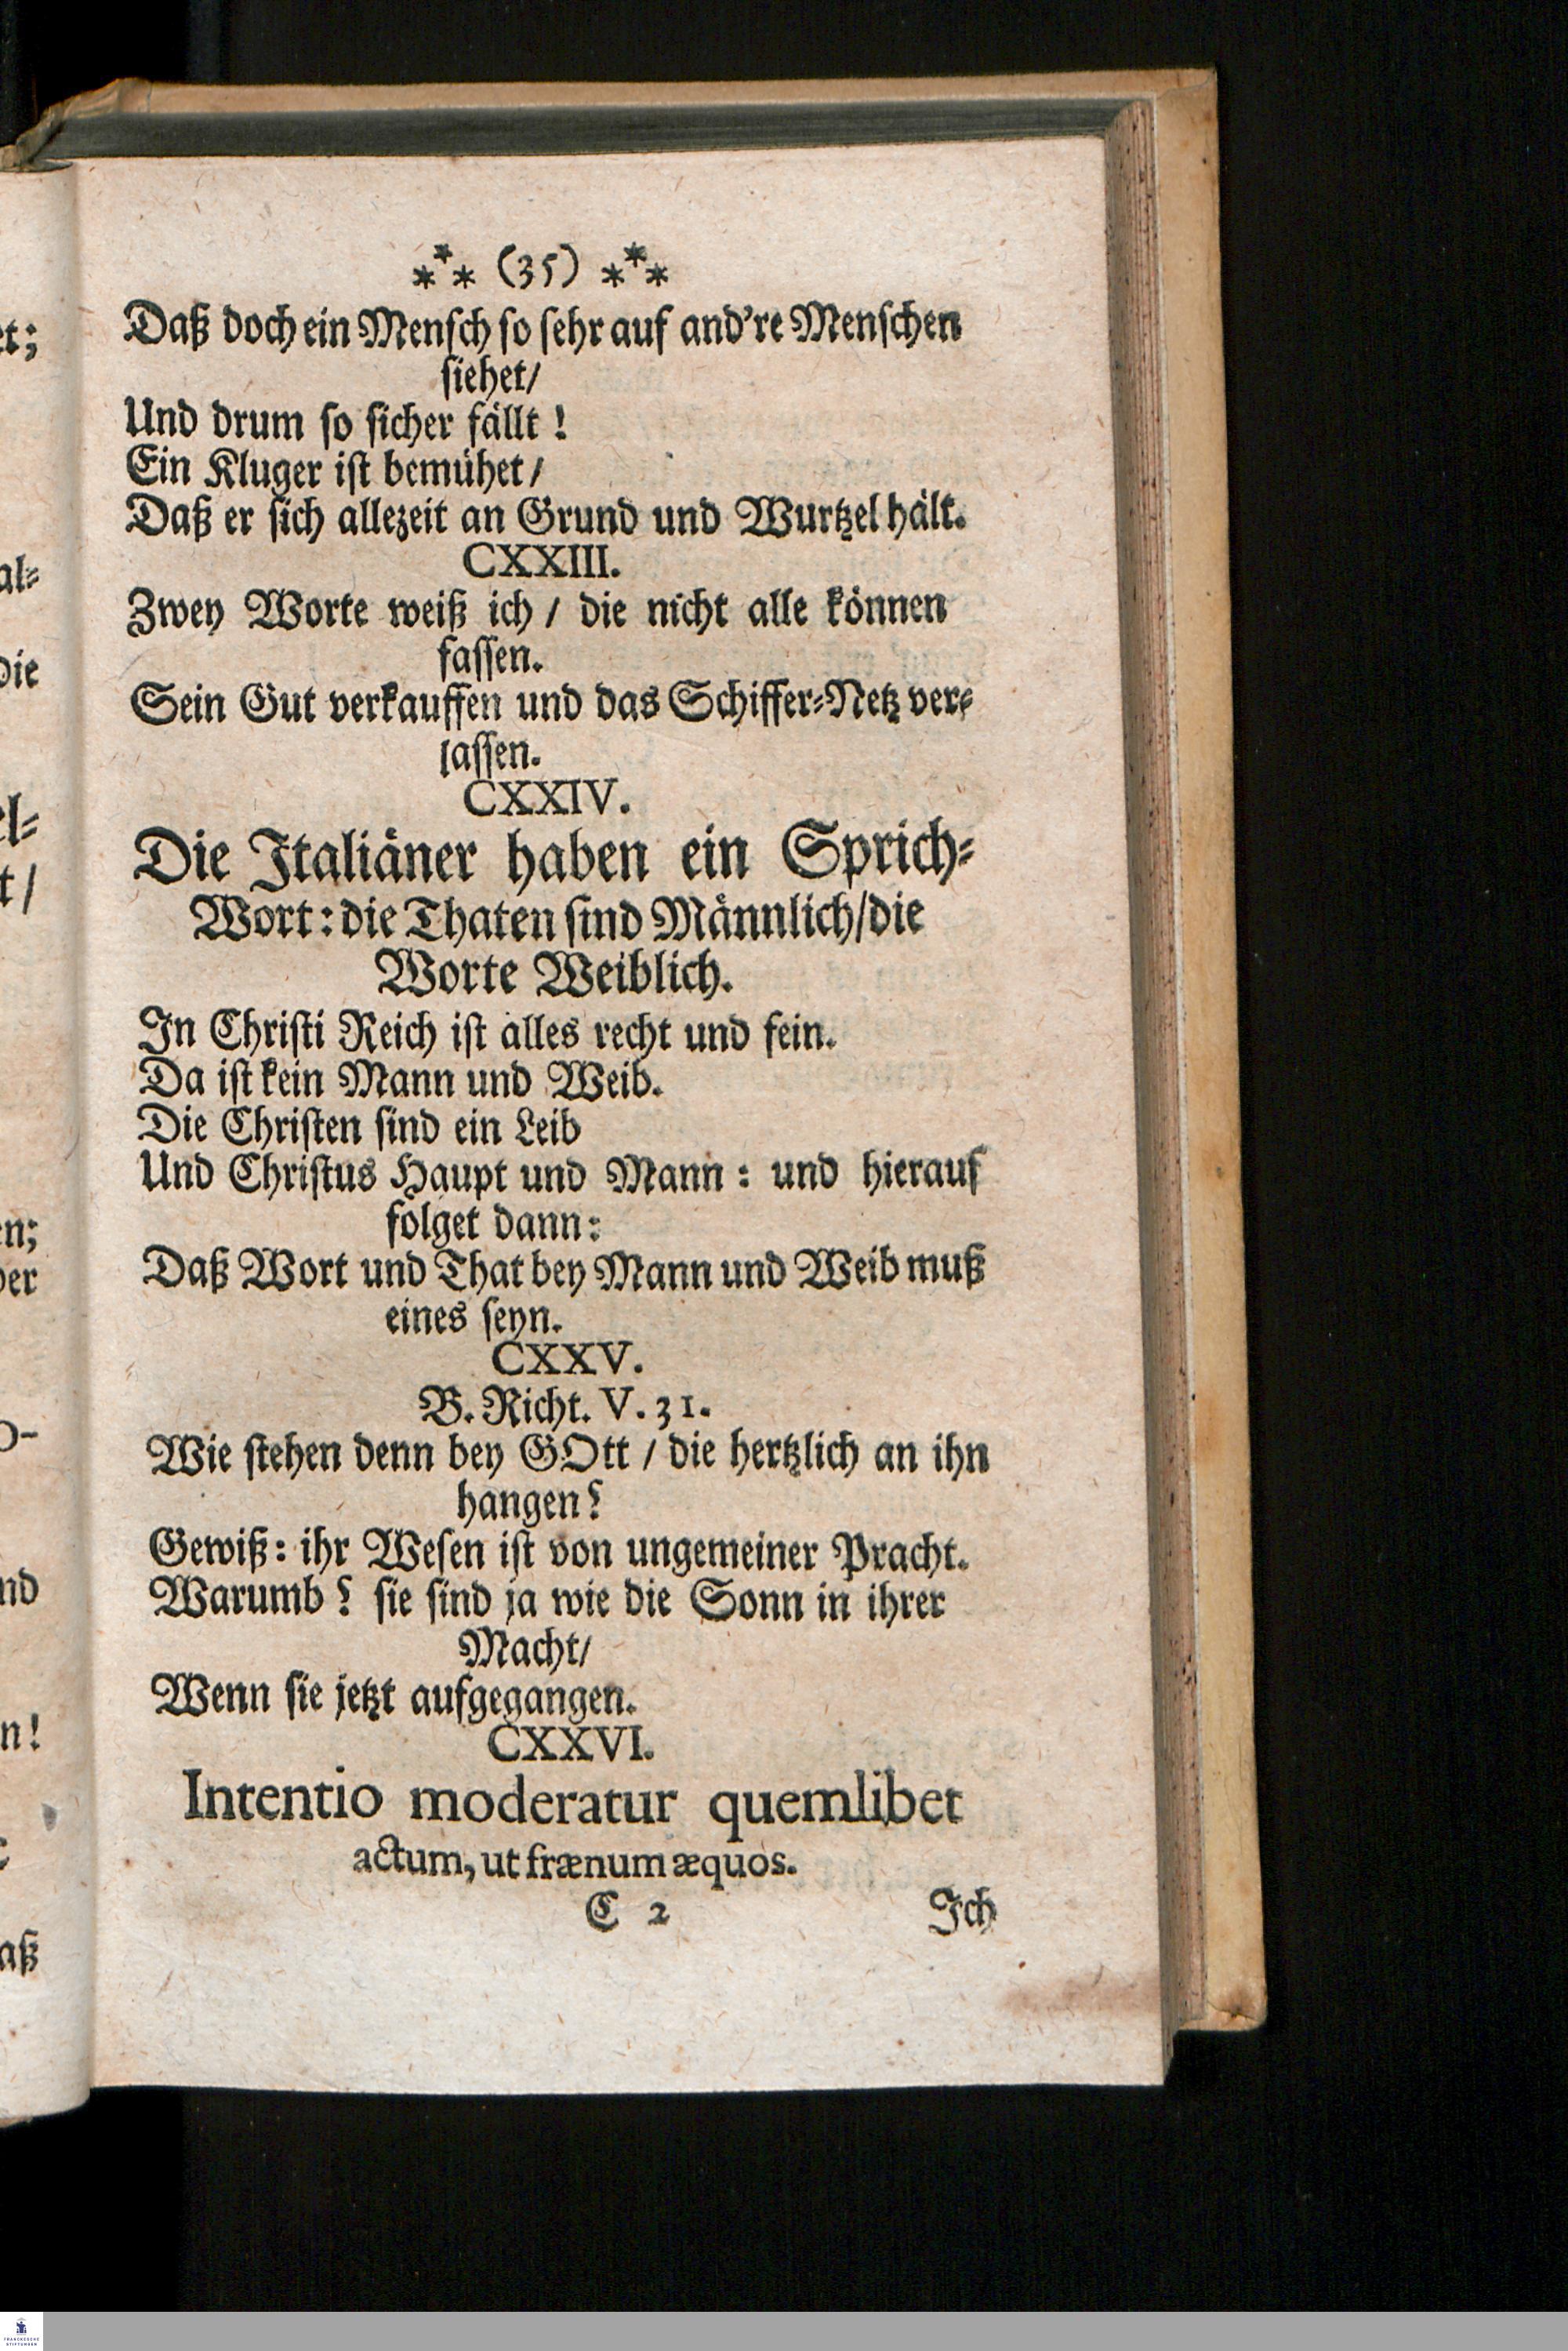 *** (35) ***
Daß doch ein Menſch ſo ſehr auf and're Menſchen
ſiehet/
Und drum ſo ſicher fällt!
Ein Kluger iſt bemühet/
Daß er ſich allezeit an Grund und Wurtzel hält.
CXXIII.
Zwey Worte weiß ich / die nicht alle können
faſſen.
Sein Gut verkauffen und das Schiffer-Netz ver-
laſſen.
CXXIV.
Die Italiäner haben ein Sprich-
Wort: die Thaten ſind Männlich/die
Worte Weiblich.
In Chriſti Reich iſt alles recht und fein.
Da iſt kein Mann und Weib.
Die Chriſten ſind ein Leib
Und Chriſtus Haupt und Mann: und hierauf
folget dann:
Daß Wort und That bey Mann und Weib muß
eines ſeyn.
CXXV.
B. Richt. V. 31.
Wie ſtehen denn bey GOtt / die hertzlich an ihn
hangen?
Gewiß: ihr Weſen iſt von ungemeiner Pracht.
Warumb? ſie ſind ja wie die Sonn in ihrer
Macht/
Wenn ſie jetzt aufgegangen.
CXXVI.
Intentio moderatur quemlibet
actum, ut frænum æquos.
C 2 Ich
et;
al-
die
el-
t/
en;
der
o-
nd
n!
aß
FRANCKESCHE
STIFTUNGEN